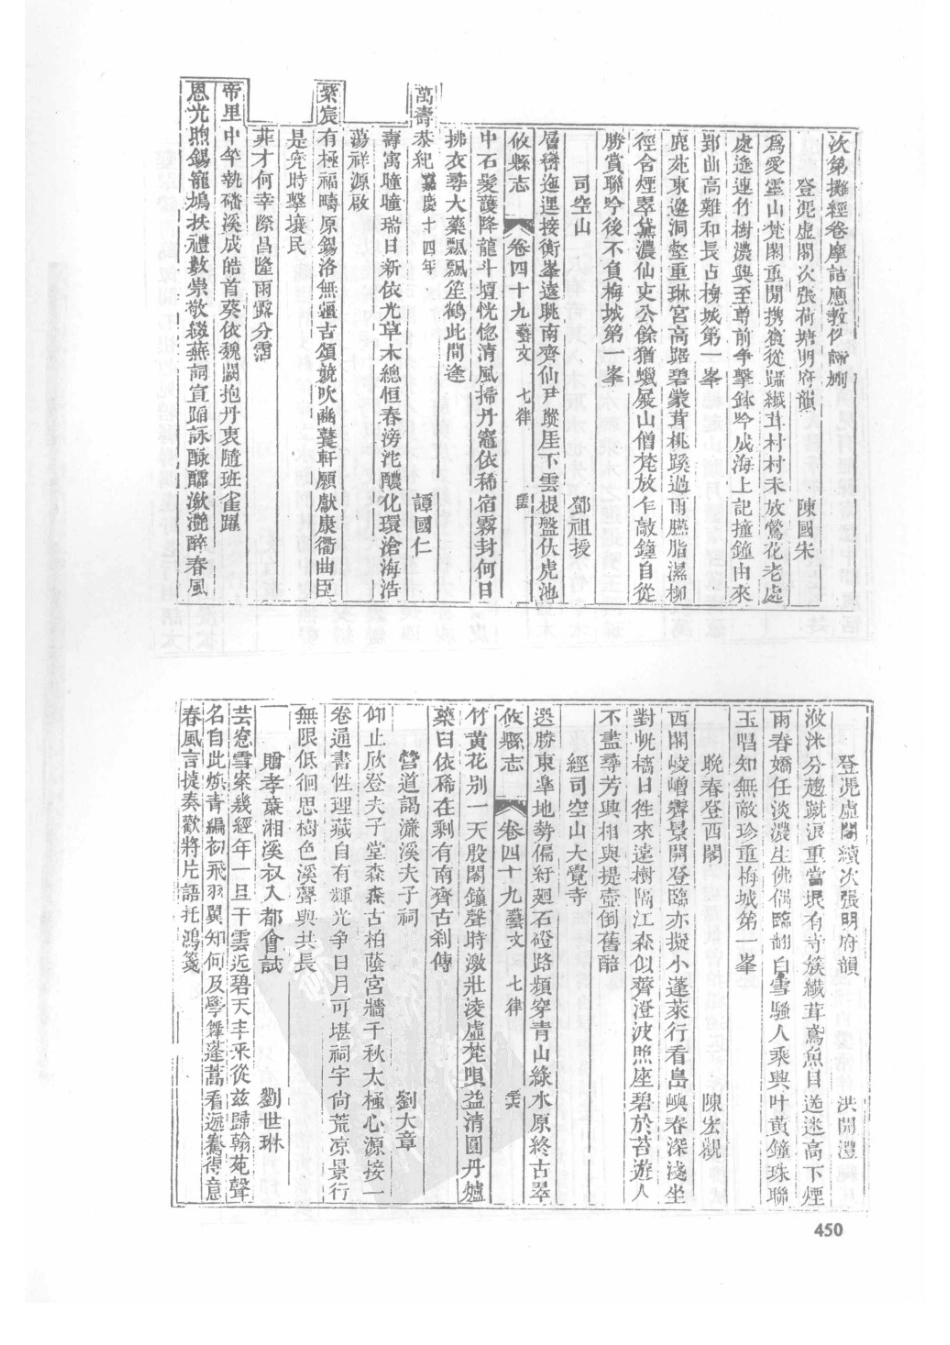 次第攤經卷摩詰應教作歸
登兜虛閣次張荷塘明府韻 陳國朱
為愛雲山梵閣重閒携從躡纖茸村村未放鶯花老處
處遙連竹樹濃興至尊前爭擊鉢吟成海上記撞鐘由來
郢曲高難和長占梅城第一峯
鹿苑東邊洞壑重琳宮高踞碧蒙茸桃蹊過雨臙脂濕柳
徑含煙翠黛濃仙吏公餘猶蠟屐山僧梵放乍敲鐘自從
勝賞聯吟後不負梅城第一峯
司空山 鄧祖授
層巒迤邐接衡峯遠眺南齊仙尹蹤崖下雲根盤伏虎池
攸縣志 卷四十九 藝文 七律
中石髮護降龍斗壇恍惚清風掃丹竈依稀宿霧封何日
拂衣尋大藥飄飄笙鶴此間逢
萬壽恭紀 嘉慶十四年 譚國仁
壽寓曈曈瑞日新依光草木總恒春滂沱醲化環滄海浩
蕩祥源啟
紫宸有極福疇原錫洛無疆古頌競吹豳蕢軒願獻康衢曲臣
是堯時擊壤民
菲才何幸際昌隆雨露分霑
帝里中竿執磻溪成皓首葵依魏闕抱丹衷隨班雀躍
恩光煦錫寵鳩扶禮數崇敬綴蕪詞宣踊詠酴醿瀲灧醉春風
登兜虛閣續次張明府韻 洪開澧
攸洣分趨蹴浪重當垠有寺簇纖茸鳶魚目送迷高下煙
雨春嬌任淡濃生佛偶臨翻白雪騷人乘興叶黃鐘珠聯
玉唱知無敵珍重梅城第一峯
晚春登西閣 陳宏觀
西閣峻嶒霽景開登臨亦擬小蓬萊行看島嶼春深淺坐
對帆檣日往來遠樹隔江森似薺澄波照座碧於苔遊人
不盡尋芳興相與提壺倒舊醅
經司空山大覺寺
選勝東準地勢偏紆廻石磴路頻穿青山綠水原終古翠
攸縣志 卷四十九 藝文 七律
竹黃花別一天殷閣鐘聲時激壯淩虛梵唄益清圓丹爐
藥臼依稀在剩有南齊古剎傳
營道謁濂溪夫子祠 劉大章
仰止欣登夫子堂森森古柏蔭宮牆千秋太極心源接一
卷通書性理藏自有輝光争日月可堪祠宇尚荒凉景行
無限低徊思樹色溪聲與共長
贈孝葊湘溪叔入都會試 劉世琳
芸窓雪案幾經年一旦干雲近碧天丰采從茲歸翰苑聲
名自此煥青編初飛羽翼知何及學舞蓬蒿看遞騫得意
春風言捷奏歡將片語托鴻箋
450